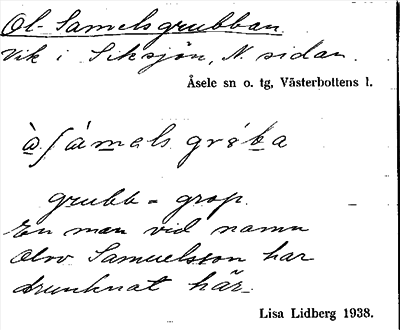 Ol-Samelsgrubban
Vik i Siksjön, N. sidan.
Åsele sn o. tg, Västerbottens l.
grubb = grop.
En man vid namn
Olov Samuelsson har
drunknat här.
Lisa Lidberg 1938.